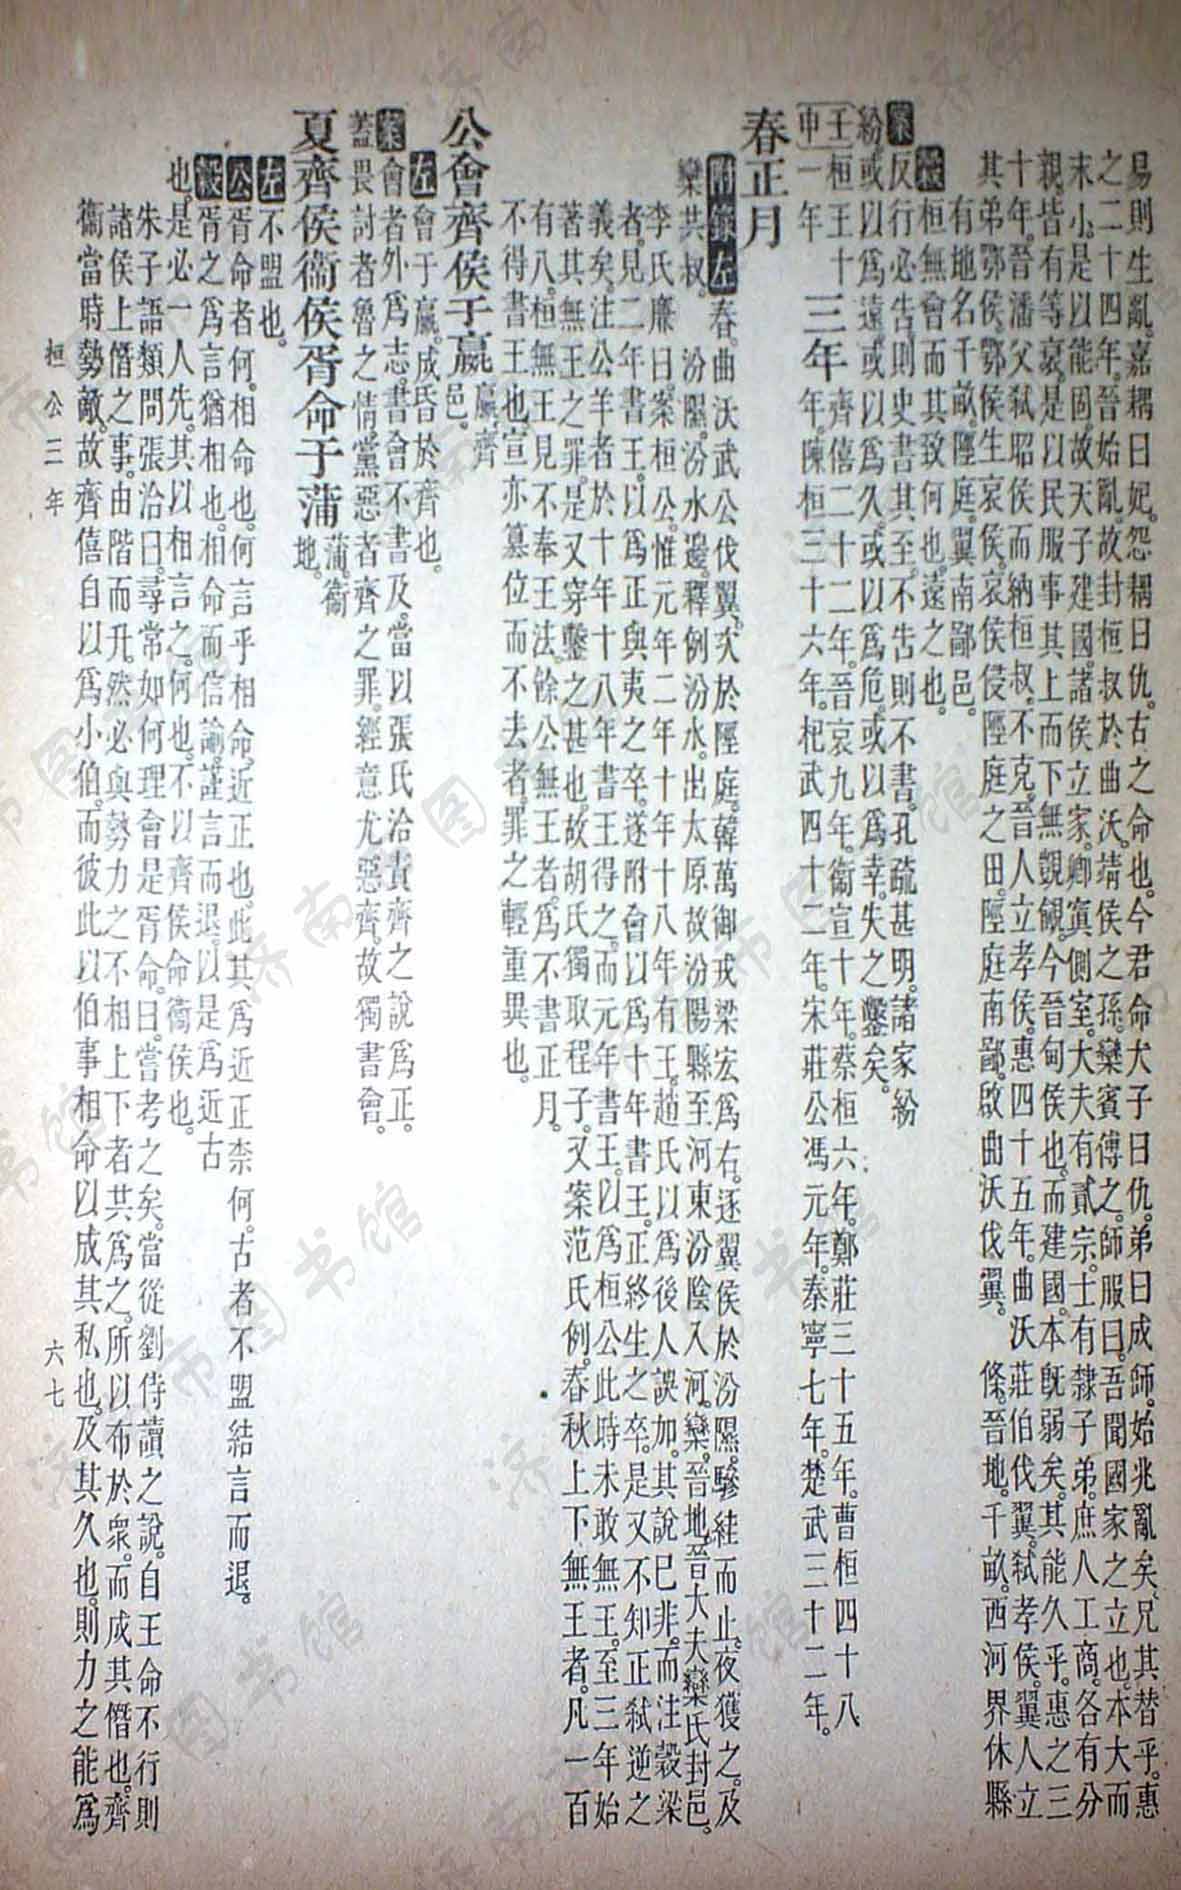 易則生亂。嘉耦曰妃。怨耦曰仇。古之命也。今君命大子曰仇。弟曰成師。始兆亂矣。兄其替乎。惠
之二十四年。晉始亂。故封桓叔於曲沃。靖侯之孫。欒賓傅之。師服曰。吾聞國家之立也。本大而
末小。是以能固。故天子建國。諸侯立家。卿寘側室。大夫有貳宗。士有隸子弟。庶人工商。各有分
親。皆有等衰。是以民服事其上而下無覬覦。今晉甸侯也。而建國。本既弱矣。其能久乎。惠之三
十年。晉潘父弒昭侯而納桓叔。不克。晉人立孝侯。惠四十五年。曲沃莊伯伐翼。弒孝侯。翼人立
其弟鄂侯。鄂侯生哀侯。哀侯侵陘庭之田。陘庭南鄙。啟曲沃伐翼。 條。晉地。千畝。西河界休縣
有地名千畝。陘庭。翼南鄙邑。
穀 桓無會而其致何也。遠之也。
案 反行必告。則史書其至。不告則不書。孔疏甚明。諸家紛
紛或以爲遠。或以爲久。或以爲危。或以爲幸。失之鑿矣。
壬申 桓王十一年 三年 齊僖二十二年。晉哀九年。衞宣十年。蔡桓六年。鄭莊三十五年。曹桓四十八
年。陳桓三十六年。杞武四十二年。宋莊公馮元年。秦寧七年。楚武三十二年。
春正月
附錄左 春。曲沃武公伐翼。次於陘庭。韓萬御戎。梁宏爲右。逐翼侯於汾隰。驂絓而止。夜獲之。及
欒共叔。 汾隰。汾水邊。釋例汾水。出太原故汾陽縣至河東汾陰入河。欒。晉地。晉大夫欒氏封邑。
李氏廉曰。案桓公。惟元年二年十年十八年有王。趙氏以爲後人誤加。其說已非。而注穀梁
者。見二年書王。以爲正與夷之卒。遂附會以爲十年書王。正終生之卒。是又不知正弒逆之
義矣。注公羊者於十年十八年書王得之。而元年書王。以爲桓公此時未敢無王。至三年始
著其無王之罪。是又穿鑿之甚也。故胡氏獨取程子。又案范氏例。春秋上下無王者。凡一百
有八。桓無王見不奉王法。餘公無王者。爲不書正月。
不得書王也。宣亦簒位而不去者。罪之輕重異也。
公會齊侯于嬴 嬴。齊
邑。
左 會于嬴。成昏於齊也。
案 會者外爲志。書會不書及。當以張氏洽責齊之說爲正。
蓋畏討者魯之情。黨惡者齊之罪。經意尤惡齊。故獨書會。
夏齊侯衞侯胥命于蒲 蒲。衞
地。
左 不盟也。
公 胥命者何。相命也。何言乎相命。近正也。此其爲近正柰何。古者不盟結言而退。
穀 胥之爲言猶相也。相命而信諭。謹言而退。以是爲近古
也。是必一人先。其以相言之。何也。不以齊侯命衞侯也。
朱子語類問張洽曰。尋常如何理會是胥命。曰。當考之矣。當從劉侍讀之說。自王命不行則
諸侯上僭之事。由階而升。然必與勢力之不相上下者共爲之。所以布於衆。而成其僭也。齊
衞當時勢敵。故齊僖自以爲小伯。而彼此以伯事相命以成其私也。及其久也。則力之能爲
桓公三年
六七